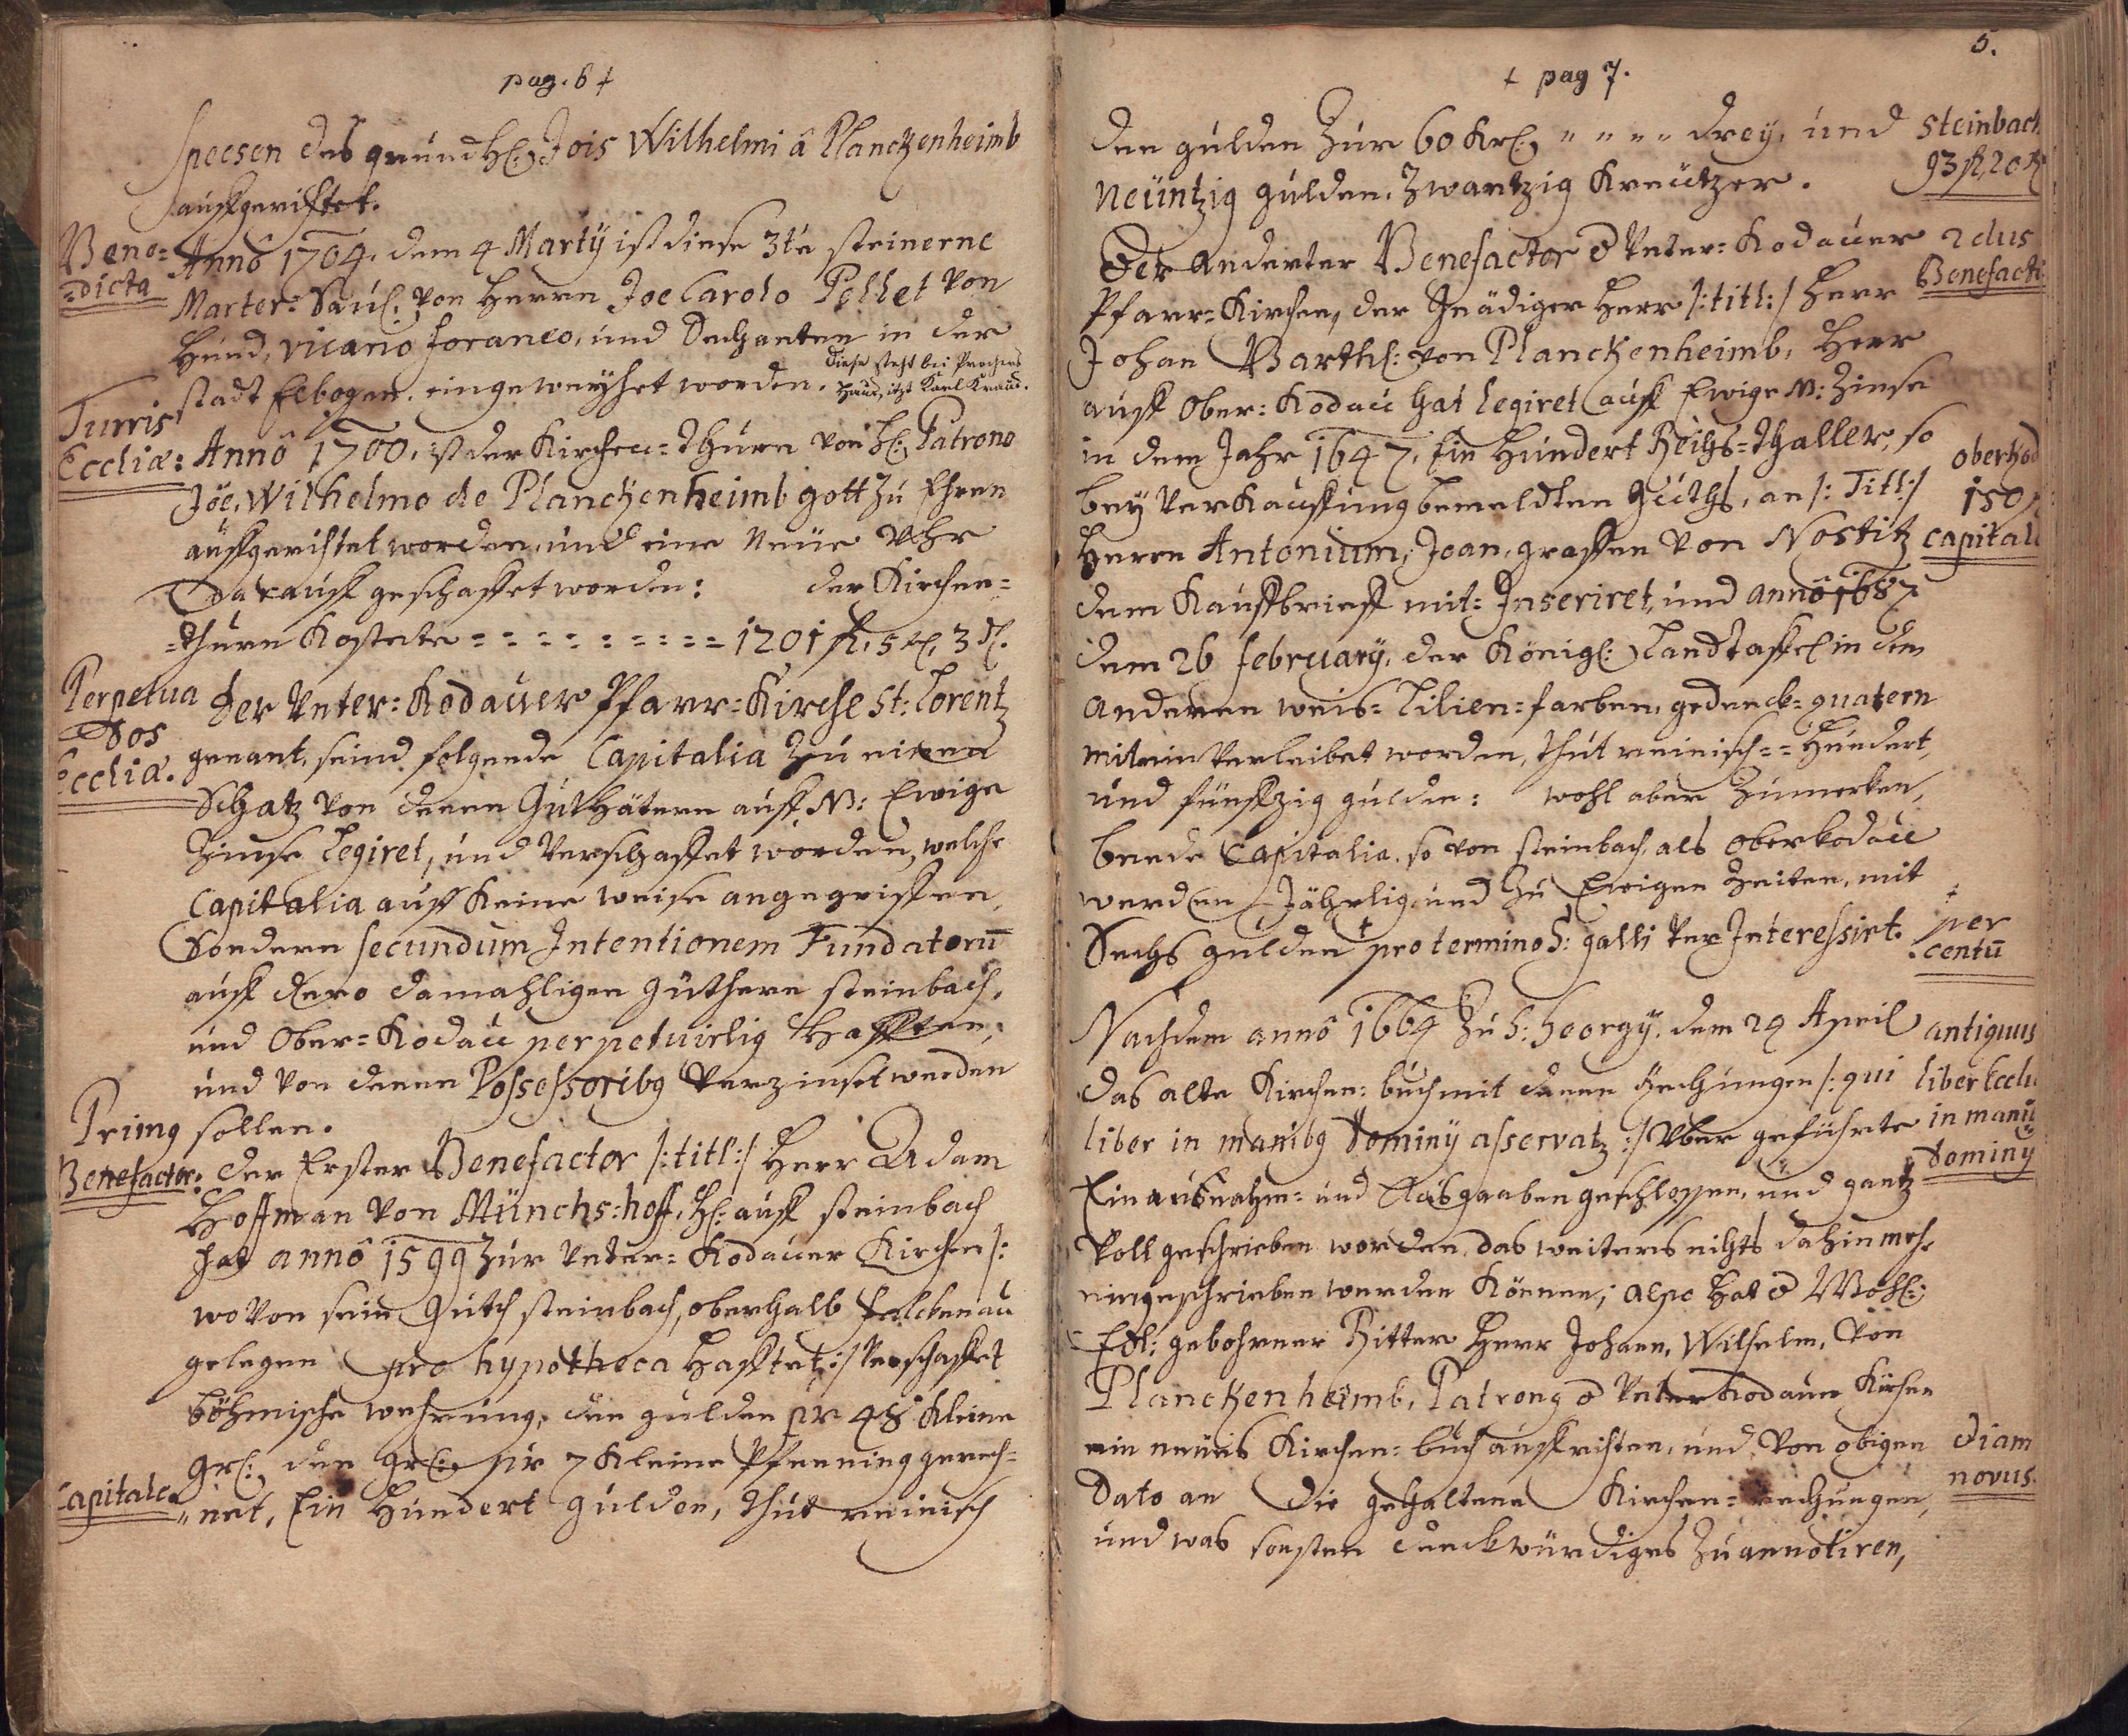 pag. 6 +
speesen des grundh: Jois Wilhelmi â Planckenheimb
auffgerichtet.
Bene=
=dicta
Annô 1704. dem 4 Martÿ ist diese 3te steinerne
Marter= Saul: von Herrn Joe Carolo Pellet von
Hund, vicario foraneo, und Dechanten in der
stadt Elbogen. eingeweyhet worden.
diese steht bei Prochers
Haus, itzt Karl Kraus.
Turris
Eccliæ:
Annô 1700. ist der Kirchen= Thurn von H: Patrono
Jöe. Wilhelmo de Planckenheimb gott zu Ehren
auffgerichtet worden, und eine neüe Vhr
darauff geschaffet worden: der Kirchen=
=thurn Kostete = = = = = = = = = 1201 fl. 5 xr. 3 d.
Perpetua
Dos
Eccliæ.
Der Unter= Kodauer Pfarr= Kirche St: Lorentz
genant, seind folgende Capitalia zu einen
Schatz von denen Guthätern auff N: Ewige
Zinse Legiret, und Verschaffet worden, welche
Capitalia auff Keine weise angegriffen,
Sondern secundum Intentionem Fundatorū
auff dero damahligen güthern steinbach,
und Ober= Kodau perpetuirlig Hafften,
und von denen Possessoribg Verzinset werden
sollen.
Primg
Benefactor:
Der Erster Benefactor /: titl:/ Herr Adam
Hoffman von Münchs:hoff, H: auff steinbach
hat annô 1599 zur Unter= Kodauer Kirchen /:
wovon sein Guth steinbach, oberhalb falckenau
gelegen pro hypotheca Hafftet :/ Verschaffet
böhmische wehrung, den gulden pr 48 Kleine
gr: den gr: pr 7 Kleine Pfenning gerech=
Capitale
"net, Ein Hundert gulden, thut reinisch
5.
+ pag 7.
den gulden Zur 60 Kr: " " " " drey, und
neüntzig gulden, Zwantzig Kreützer.
steinbach
93 fl, 20 K
Der anderter Benefactor d Unter= Kodauer
Pfarr= Kirchen, der Gnädiger Herr /: titl:/ Herr
2dus
Benefacti
Johan Barthl: von Planckenheimb, Herr
auff Ober= Kodau hat legiret auff Ewige N: Zinse
in dem Jahr 1647. Ein Hundert Reichs= Thaller, so
bey Verkauffung bemeldten Guths, an /: Titl:/
Herrn Antonium, Joan, graffen von Nostitz
oberkod
150
capitale
dem Kauffbrieff mit= Inseriret, und annô 1687
dem 26 february, der Königl: Landtaffel in dem
anderen weis= Lilien= farben, gedenck= quatern
mit ein Verleibet worden, thut reinisch = = Hundert,
und fünffzig gulden: wohl aber Zumerken,
beede Capitalia. so von steinbach, als Oberkodau
werden Jährlig und zu Ewigen Zeiten, mit
Sechs gulden + pro termino S: galli Ver Interessirt.
+
per
centū
Nachdem annô 1664 zu S: Georgÿ. dem 24 April
das alte Kirchen= buch mit denen Rechnungen /: qui
liber in manibg Dominÿ asservatz :/ Vber geführte
antiquus
liber Eccli
in manū
Dominÿ
Ein ausnahm= und Ausgaaben geschlossen, und gantz
Voll geschrieben worden, das weiters nichts dahin mehr
eingeschrieben werden Können; also Hat d Wohl:
Edl: gebohrner Ritter Herr Johann, Wilhelm, von
Planckenheimb, Patrong d Unter Kodauer Kirchen
ein neües Kirchen= buch auffrichten, und von obigen
Dato an die gehaltene Kirchen= rechnungen,
und was sonsten denckwürdiges Zu annotiren,
Diam
novus.